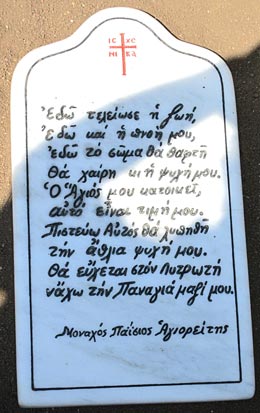 IC XC
NI KA
Ἐδῶ τελείωσε ἡ ζωή,
ἐδῶ καί ἡ πνοή μου,
ἐδῶ τό σῶμα θά θαφτῆ
θά χαίρη κι ἡ ψυχή μου.
Ὁ Ἅγιός μου κατοικεῖ,
αὐτό εἶναι τιμή μου.
Πιστεύω Αὐτός θά λυπηθῆ
τήν ἄθλια ψυχή μου.
Θά εὔχεται στόν Λυτρωτή
νἄχω τήν Παναγιά μαζί μου.
Μοναχός Παΐσιος Ἁγιορείτης